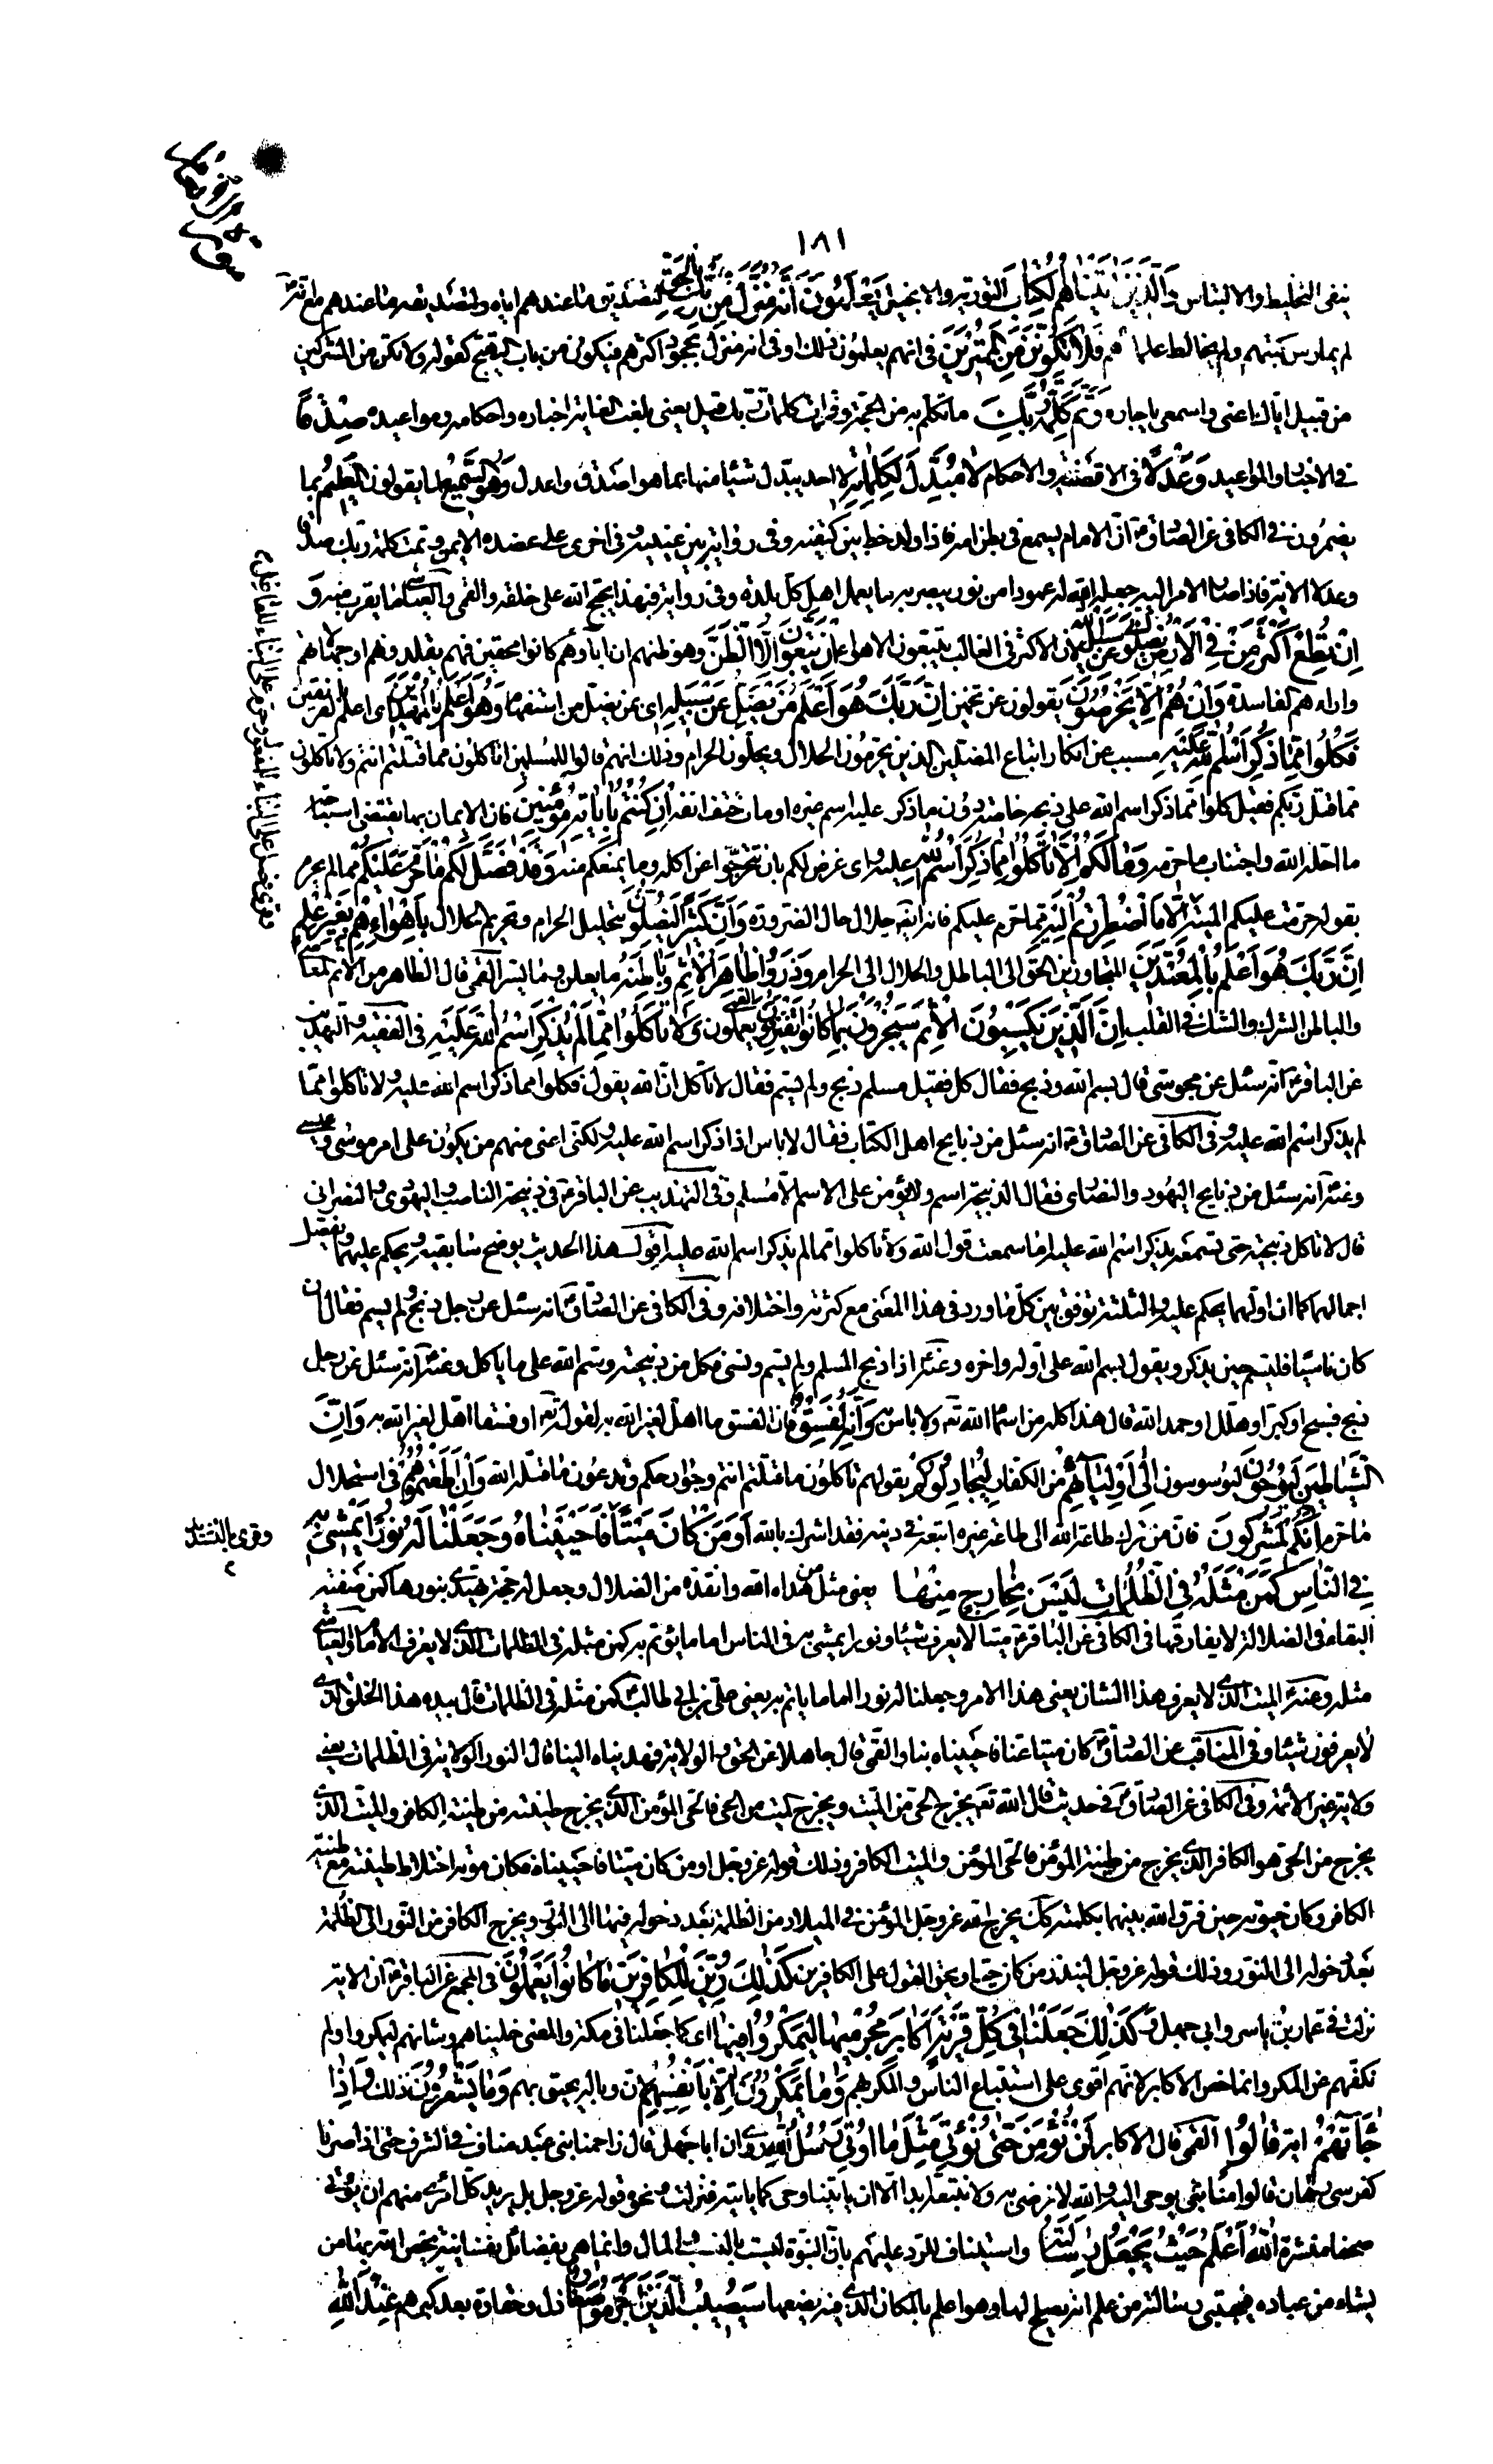 ١٨١
ينفى التخليط والالتباس وَالَّذِينَ اٰتَيْنَاهُمُ الْكِتَابَ التورية والانجيل يَعْلَمُونَ أَنَّهُ مُنَزَّلٌ مِنْ رَبِّكَ بِالْحَقِّ لتصديق ما عندهم اياه ولتصديقه ما عندهم مع انه
لم يمارس كتبهم ولم يخالط علماءهم فَلَا تَكُونَنَّ مِنَ الْمُمْتَرِينَ فى انهم يعلمون ذلك او فى انه منزل بجحود اكثرهم فيكون من باب التهييج كقوله ولا تكونن من المشركين
من قبيل اياك اعنى واسمعى يا جاره وَتَمَّتْ كَلِمَةُ رَبِّكَ ما تكلم به من الحجة وقرئت كلمات ربك قيل يعنى بلغت الغاية اخباره واحكامه ومواعيده صِدْقًا
فى الاخبار والمواعيد وَعَدْلًا فى الاقضية والاحكام لَا مُبَدِّلَ لِكَلِمَاتِهِ لا احد يبدل شيئا منها بما هو اصدق واعدل وَهُوَ السَّمِيعُ لما يقولون الْعَلِيمُ بما
يضمرون فى الكافى عن الصادق ع ان الامام يسمع فى بطن امه فاذا ولد خط بين كتفيه وفى رواية بين عينيه وفى اخرى على عضده الايمن وتمت كلمة ربك صدقا
وعدلا الاية فاذا صار الامر اليه جعل الله له عمودا من نور يبصر به ما يعمل اهل كل بلدة وفى رواية فبهذا يحتج الله على خلقه والقمى والعياشى ما يقرب منه وَ
اِنْ تُطِعْ اَكْثَرَ مَنْ فِى الْاَرْضِ يُضِلُّوكَ عَنْ سَبِيلِ اللّٰهِ لان الاكثر فى الغالب يتبعون الاهواء اِنْ يَتَّبِعُونَ اِلَّا الظَّنَّ وهو ظنهم ان اباؤهم كانوا محقين فهم يقلدونهم او جهالاتهم
واراءهم الفاسدة وَاِنْ هُمْ اِلَّا يَخْرُصُونَ يقولون عن تخمين اِنَّ رَبَّكَ هُوَ اَعْلَمُ مَنْ يَضِلُّ عَنْ سَبِيلِهِ اى بمن يضل من استفهامية وَهُوَ اَعْلَمُ بِالْمُهْتَدِينَ اى اعلم بالفريقين
فَكُلُوا مِمَّا ذُكِرَ اسْمُ اللّٰهِ عَلَيْهِ مسبب عن انكار اتباع المضلين الذين يحرمون الحلال ويحلون الحرام وذلك انهم قالوا للمسلمين اتاكلون مما قتلتم انتم ولا تاكلون
مما قتل ربكم فقيل كلوا مما ذكر اسم الله على ذبحه خاصة دون ما ذكر عليه اسم غيره او مات حتف انفه اِنْ كُنْتُمْ بِاٰيَاتِهِ مُؤْمِنِينَ فان الايمان بها يقتضى استباحة
ما احله الله واجتناب ما حرمه وَمَا لَكُمْ اَلَّا تَأْكُلُوا مِمَّا ذُكِرَ اسْمُ اللّٰهِ عَلَيْهِ واى غرض لكم بان تتحرجوا عن اكله وما يمنعكم منه وَقَدْ فَصَّلَ لَكُمْ مَا حَرَّمَ عَلَيْكُمْ مما لم يحرم
بقوله حرمت عليكم الميتة اِلَّا مَا اضْطُرِرْتُمْ اِلَيْهِ مما حرم عليكم فانه ايضا حلال حال الضرورة وَاِنَّ كَثِيرًا لَيُضِلُّونَ بتحليل الحرام وتحريم الحلال بِاَهْوَائِهِمْ بِغَيْرِ عِلْمٍ
اِنَّ رَبَّكَ هُوَ اَعْلَمُ بِالْمُعْتَدِينَ المتجاوزين الحق الى الباطل والحلال الى الحرام وَذَرُوا ظَاهِرَ الْاِثْمِ وَبَاطِنَهُ ما يعلن وما يسر القمى قال الظاهر من الاثم المعاصى
والباطن الشرك والشك فى القلب اِنَّ الَّذِينَ يَكْسِبُونَ الْاِثْمَ سَيُجْزَوْنَ بِمَا كَانُوا يَقْتَرِفُونَ القمى يعملون وَلَا تَأْكُلُوا مِمَّا لَمْ يُذْكَرِ اسْمُ اللّٰهِ عَلَيْهِ فى الفقيه والتهذيب
عن الباقر ع انه سئل عن مجوسى قال بسم الله وذبح فقال كل فقيل مسلم ذبح ولم يسم فقال لا تاكل ان الله يقول فكلوا مما ذكر اسم الله عليه ولا تاكلوا مما
لم يذكر اسم الله عليه وفى الكافى عن الصادق ع انه سئل من ذبايح اهل الكتاب فقال لا باس اذا ذكر اسم الله عليه ولكنى اعنى منهم من يكون على امر موسى وعيسى
وعنه ع انه سئل من ذبايح اليهود والنصارى فقال الذبيحة اسم ولا يؤمن على الاسم الا مسلم وفى التهذيب عن الباقر ع فى ذبيحة الناصب واليهودى والنصرانى
قال لا تاكل ذبيحته حتى تسمعه يذكر اسم الله عليه اما سمعت قول الله ولا تاكلوا مما لم يذكر اسم الله عليه اقول هذا الحديث يوضح سابقيه ويحكم عليهما ويفصل
اجمالهما كما ان اولهما يحكم عليه والثلثة توفق بين كل ما ورد فى هذا المعنى مع كثرته واختلافه وفى الكافى عن الصادق ع انه سئل عن رجل ذبح ولم يسم فقال ان
كان ناسيا فليسم حين يذكر ويقول بسم الله على اوله واخره وعنه ع اذا ذبح المسلم ولم يسم ونسى فكل من ذبيحته وسم الله على ما ياكل وعنه ع انه سئل عن رجل
ذبح فسبح او كبر او هلل او حمد الله قال هذا كله من اسماء الله تعالى ولا باس به وَاِنَّهُ لَفِسْقٌ فان الفسق ما اهل لغير الله به لقوله تعالى او فسقا اهل لغير الله به وَاِنَّ
الشَّيَاطِينَ لَيُوحُونَ ليوسوسون اِلٰى اَوْلِيَائِهِمْ من الكفار لِيُجَادِلُوكُمْ بقولهم تاكلون ما قتلتم انتم وجوارحكم وتدعون ما قتله الله وَاِنْ اَطَعْتُمُوهُمْ فى استحلال
ما حرم اِنَّكُمْ لَمُشْرِكُونَ فان من ترك طاعة الله الى طاعة غيره اتبعه فى دينه فقد اشرك بالله اَوَمَنْ كَانَ مَيْتًا فَاَحْيَيْنَاهُ وَجَعَلْنَا لَهُ نُورًا يَمْشِى بِهِ
وقرئ بالتشديد
فِى النَّاسِ كَمَنْ مَثَلُهُ فِى الظُّلُمَاتِ لَيْسَ بِخَارِجٍ مِنْهَا يعنى مثل من هداه الله وانقذه من الضلال وجعل له حجة يهتدى بنورها كمن صفته
البقاء فى الضلالة لا يفارقها فى الكافى عن الباقر ع ميتا لا يعرف شيئا ونورا يمشى به فى الناس اماما يؤتم به كمن مثله فى الظلمات الذى لا يعرف الامام والعياشى
مثله وعنه ع الميت الذى لا يعرف هذا الشان يعنى هذا الامر وجعلنا له نورا اماما ياتم به يعنى على بن ابى طالب ع كمن مثله فى الظلمات قال بيده هذا الخلق الذى
لا يعرفون شيئا وفى المناقب عن الصادق ع كان ميتا عنا فاحييناه بنا والقمى قال جاهلا عن الحق والولاية فهديناه الينا قال النور الولاية فى الظلمات يعنى
ولاية غير الائمة وفى الكافى عن الصادق ع فى حديث قال الله تعالى يخرج الحى من الميت ويخرج الميت من الحى فالحى المؤمن الذى يخرج طينته من طينة الكافر والميت الذى
يخرج من الحى هو الكافر الذى يخرج من طينة المؤمن فالحى المؤمن والميت الكافر وذلك قوله عز وجل او من كان ميتا فاحييناه فكان موته اختلاط طينته مع طينة
الكافر وكان حيوته حين فرق الله بينهما بكلمته كك يخرج الله عز وجل المؤمن فى الميلاد من الظلمة بعد دخوله فيها الى النور ويخرج الكافر من النور الى الظلمة
بعد دخوله الى النور وذلك قوله عز وجل لينذر من كان حيا ويحق القول على الكافرين كَذٰلِكَ زُيِّنَ لِلْكَافِرِينَ مَا كَانُوا يَعْمَلُونَ فى المجمع عن الباقر ع ان الاية
نزلت فى عمار بن ياسر وابى جهل وَكَذٰلِكَ جَعَلْنَا فِى كُلِّ قَرْيَةٍ اَكَابِرَ مُجْرِمِيهَا لِيَمْكُرُوا فِيهَا اى كما جعلنا فى مكة والمعنى خليناهم وشانهم ليمكروا ولم
نكفهم عن المكر وانما خص الاكابر لانهم اقوى على استتباع الناس والمكر بهم وَمَا يَمْكُرُونَ اِلَّا بِاَنْفُسِهِمْ لان وباله يحيق بهم وَمَا يَشْعُرُونَ ذلك وَاِذَا
جَاءَتْهُمْ اٰيَةٌ قَالُوا القمى قال الاكابر لَنْ نُؤْمِنَ حَتّٰى نُؤْتٰى مِثْلَ مَا اُوتِىَ رُسُلُ اللّٰهِ روى ان ابا جهل قال زاحمنا بنى عبد مناف فى الشرف حتى اذا صرنا
كفرسى رهان قالوا منا نبى يوحى اليه والله لا نرضى به ولا نتبعه ابدا الا ان ياتينا وحى كما ياتيه فنزلت ونحوه قوله عز وجل بل يريد كل امرئ منهم ان يؤتى
صحفا منشرة اَللّٰهُ اَعْلَمُ حَيْثُ يَجْعَلُ رِسَالَتَهُ واستيناف للرد عليهم بان النبوة ليست بالنسب والمال وانما هى بفضائل نفسانية يخص الله بها من
يشاء من عباده فيجتبى رسالته من علم انه يصلح لها وهو اعلم بالمكان الذى فيه يضعها سَيُصِيبُ الَّذِينَ اَجْرَمُوا صَغَارٌ ذل وحقارة بعد كبرهم عِنْدَ اللّٰهِ